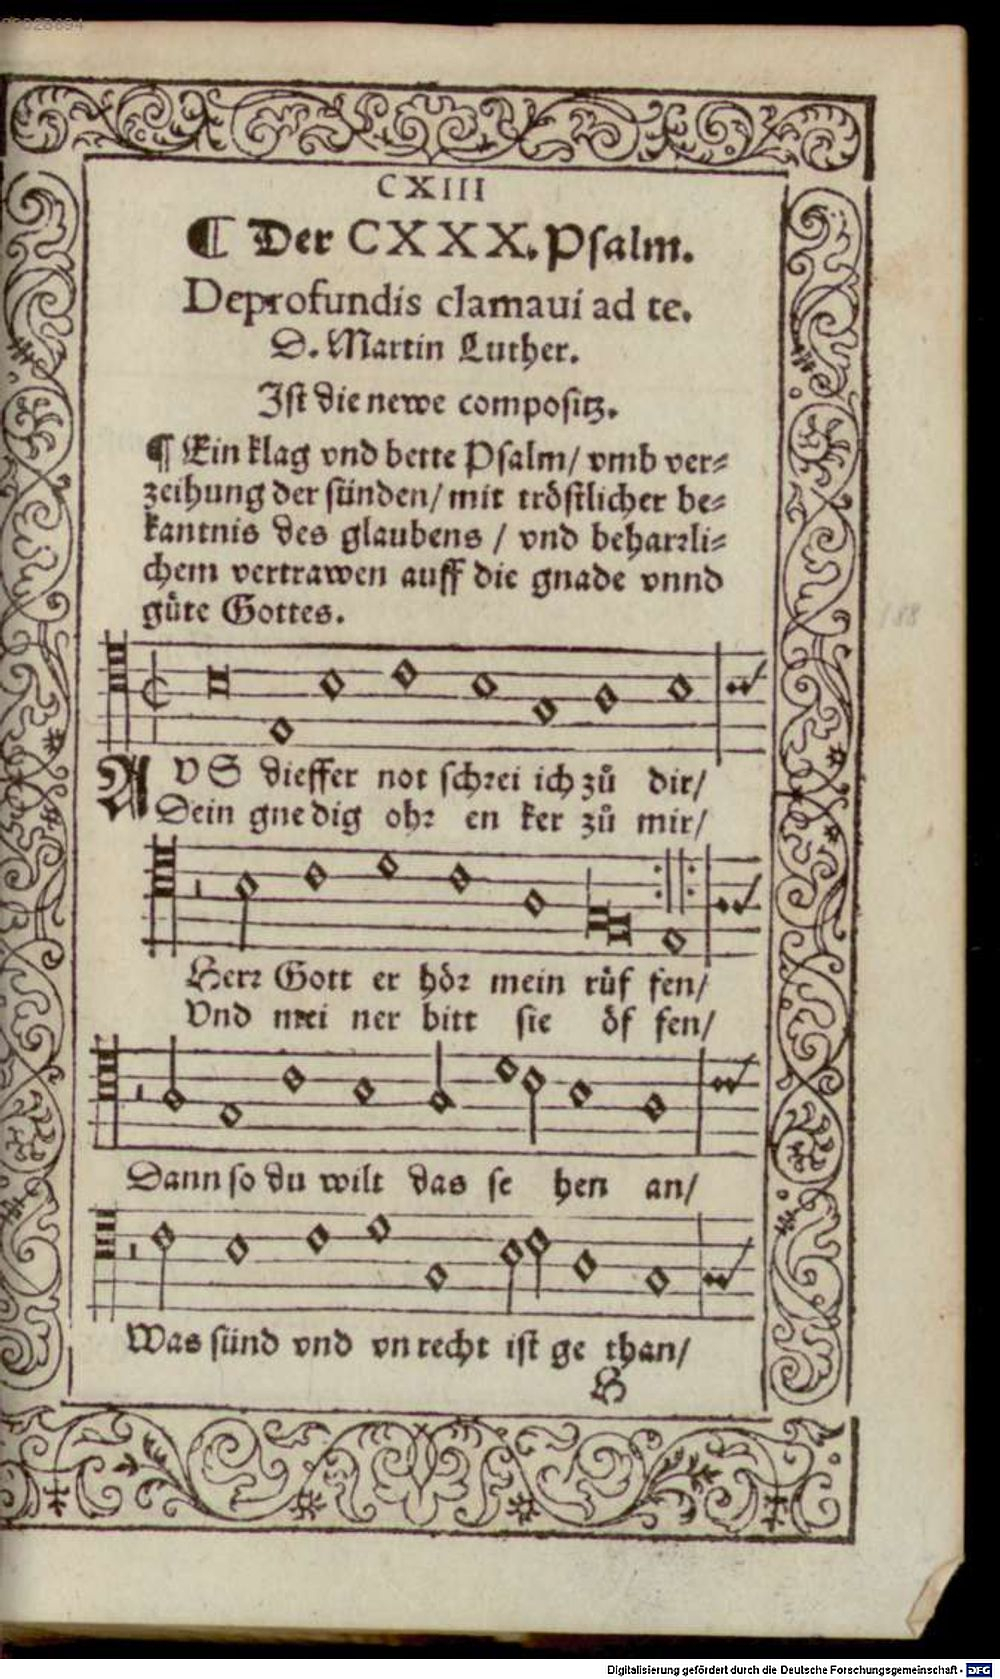 00028694
CXIII
¶ Der CXXX. Psalm.
Deprofundis clamaui ad te.
D. Martin Luther.
Ist die newe compositz.
¶ Ein klag vnd bette Psalm/ vmb ver⸗
zeihung der sünden/ mit tröstlicher be⸗
kantnis des glaubens / vnd beharꝛli⸗
chem vertrawen auff die gnade vnnd
güte Gottes.
AVS dieffer not schꝛei ich zů dir/
Dein gne dig ohꝛ en ker zů mir/
Herꝛ Gott er höꝛ mein rüf fen/
Vnd mei ner bitt sie öf fen/
Dann so du wilt das se hen an/
Was sünd vnd vn recht ist ge than/
H
188
Digitalisierung gefördert durch die Deutsche Forschungsgemeinschaft - DFG